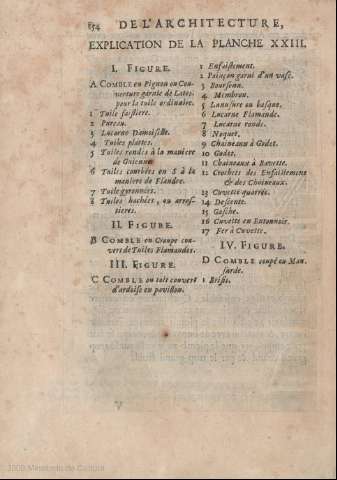 154 DE L'ARCHITECTURE,
EXPLICATION DE LA PLANCHE XXIII.
I. FIGURE.
A COMBLE en Pignon ou Couverture garnie de Lates,
pour la tuile ordinaire.
1 Tuile faistiere.
2 Pureau.
3 Lucarne Damoiselle.
4 Tuiles plattes.
5 Tuiles rondes à la maniere
de Guienne.
6 Tuiles courbées en S à la
maniere de Flandre.
7 Tuile gyronnées.
8 Tuiles hachées, ou arrestieres.
II. FIGURE.
B COMBLE en Croupe couvert de Tuiles Flamandes.
III. FIGURE.
C COMBLE en toit couvert
d'ardoise en pavillon.
1 Enfaistement.
2 Poinçon garni d'un vase.
3 Bourseau.
4 Membron.
5 Lanusure ou basque.
6 Lucarne Flamande.
7 Lucarne ronde.
8 Noquet.
9 Chaineaux à Godet.
10 Godet.
11 Chaineaux à Bavette.
12 Crochets des Enfaistemens
& des Chaineaux.
13 Cuvette quarrée.
14 Descente.
15 Gasche.
16 Cuvette en Entonnoir.
17 Fer à Cuvette.
IV. FIGURE.
D COMBLE coupé ou Mansarde.
1 Brisis.
2009 Ministerio de Cultura